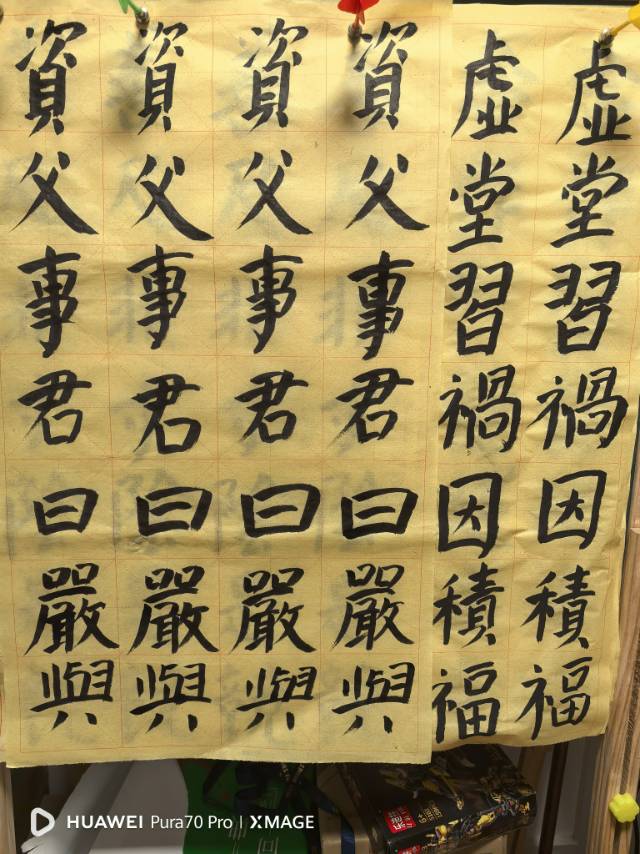 虚堂習禍因積福
虚堂習禍因積福
資父事君曰嚴與
資父事君曰嚴與
資父事君曰嚴與
資父事君曰嚴與
HUAWEI Pura70 Pro | XMAGE